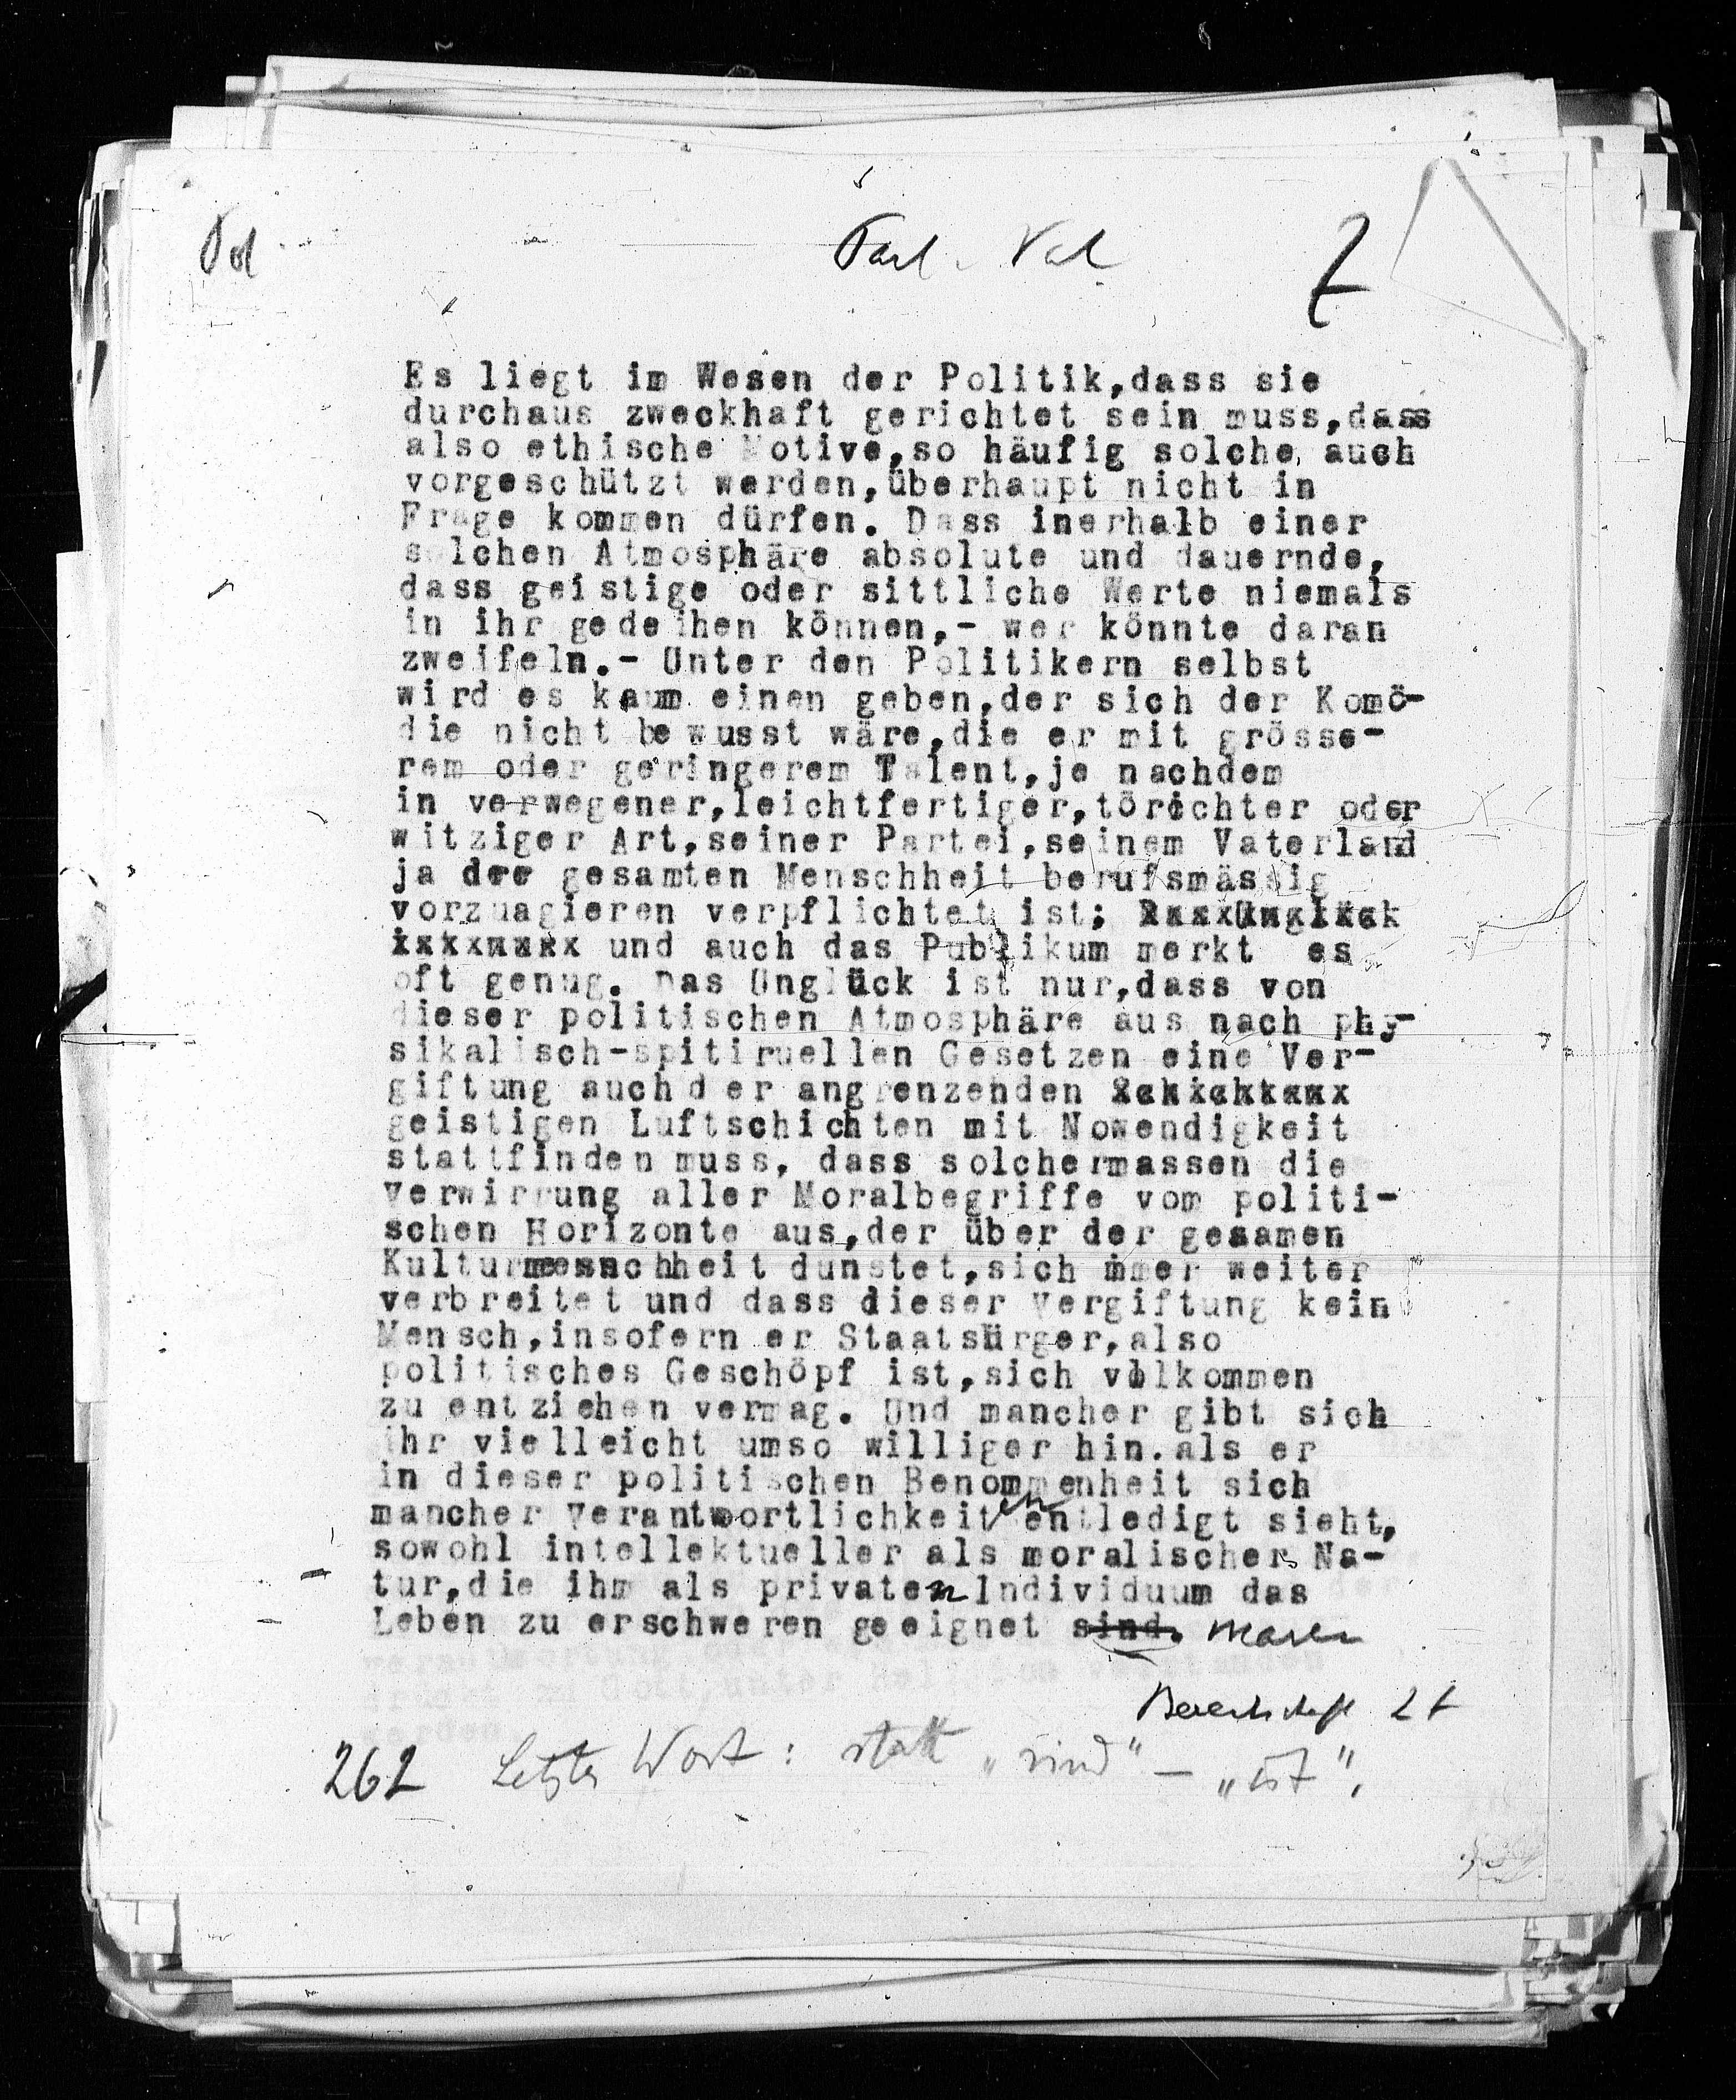 Pol
Es liegt im Wesen der Politik,dass sie
durchaus zweckhaft gerichtet sein muss,dass
also ethische Motive,so häufig solche auch
vorgeschützt werden,überhaupt nicht in
Frage kommen dürfen. Dass inerhalb einer
solchen Atmosphäre absolute und dauernde,
dass geistige oder sittliche Werte niemals
in ihr gedeihen können,- wer könnte daran
zweifeln.- Unter den Politikern selbst
wird es kaum einen geben,der sich der Komö-
die nicht bewusst wäre,die er mit grösse-
rem oder geringerem Talent,je nachdem
in verwegener,leichtfertiger,törichter oder
witziger Art,seiner Partei,seinem Vaterland
ja der gesamten Menschheit berufsmässig
vorzuagieren verpflichtet ist; Unglück
und auch das Publikum merkt es
oft genug. Das Unglück ist nur,dass von
dieser politischen Atmosphäre aus nach phy-
sikalisch-spitiruellen Gesetzen eine Ver-
giftung auch der angrenzenden
geistigen Luftschichten mit Nowendigkeit
stattfinden muss, dass solchermassen die
Verwirrung aller Moralbegriffe vom politi-
schen Horizonte aus,der über der gesamen
Kulturmenschheit dunstet,sich immer weiter
verbreitet und dass dieser Vergiftung kein
Mensch,insofern er Staatsürger,also
politisches Geschöpf ist,sich vollkommen
zu entziehen vermag. Und mancher gibt sich
ihr vielleicht umso williger hin.als er
in dieser politischen Benommenheit sich
mancher Verantwortlichkeiten entledigt sieht,
sowohl intellektueller als moralischer Na-
tur,die ihm als privaten Individuum das
Leben zu erschweren geeignet sind. wären
262 Letztes Wort: statt „sind" – „ist".